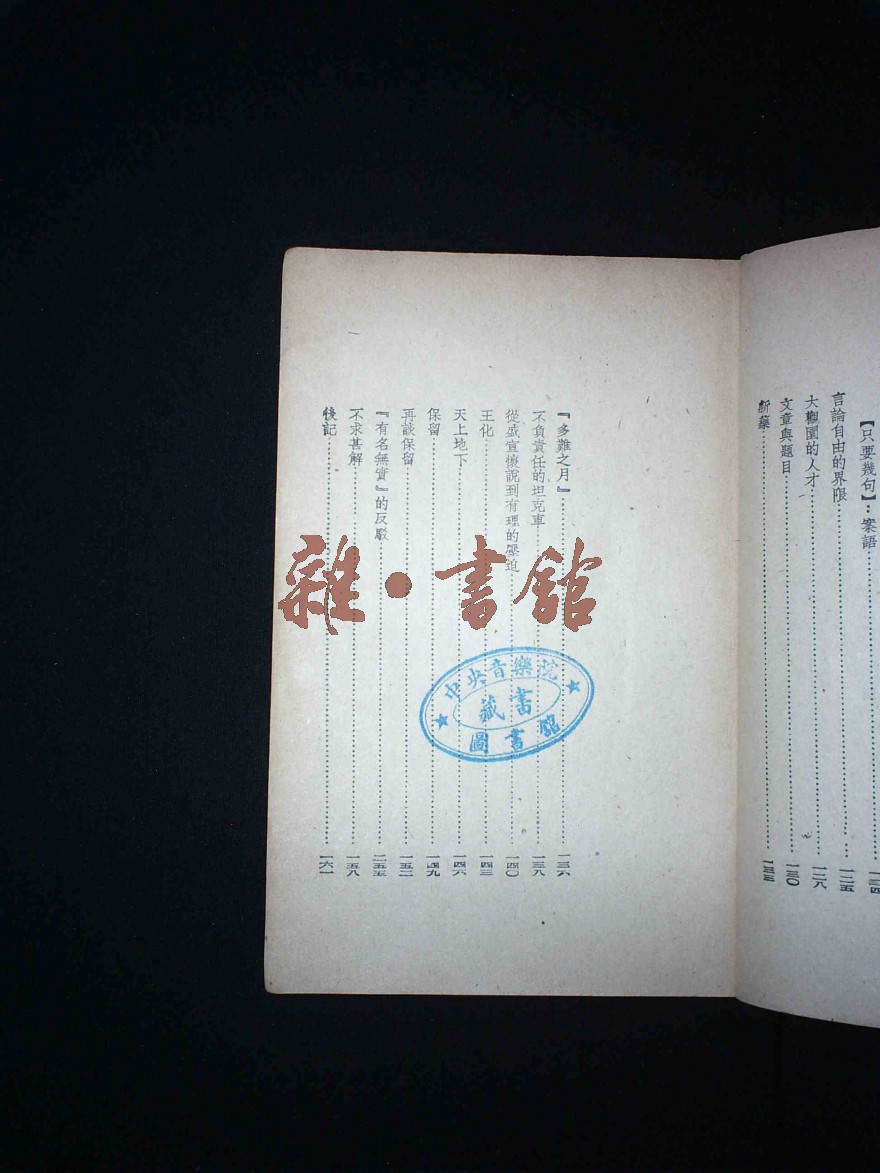 【只要幾句】：案語……一二四
言論自由的界限……一二五
大觀園的人才……一二八
文章與題目……一三〇
新藥……一三三
『多難之月』……一三六
不負責任的坦克車……一三八
從盛宣懷說到有理的壓迫……一四〇
王化……一四三
天上地下……一四六
保留……一四九
再談保留……一五二
『有名無實』的反駁……一五五
不求甚解……一五八
後記……一六一
雜·書館
中央音樂院
藏書
圖書館